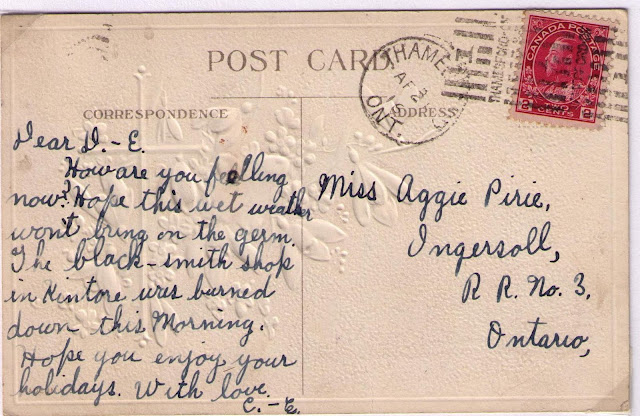 POST CARD
CORRESPONDENCE
ADDRESS
THAME
AP 2
15
ONT.
CANADA POSTAGE
2 CENTS 2
Dear D.-E.
How are you feelling
now? Hope this wet weather
won't bring on the germ.
The black-smith shop
in Kintore was burned
down this Morning.
Hope you enjoy your
holidays. With love.
C.-E.
Miss Aggie Pirie,
Ingersoll,
R R. No. 3.
Ontario,